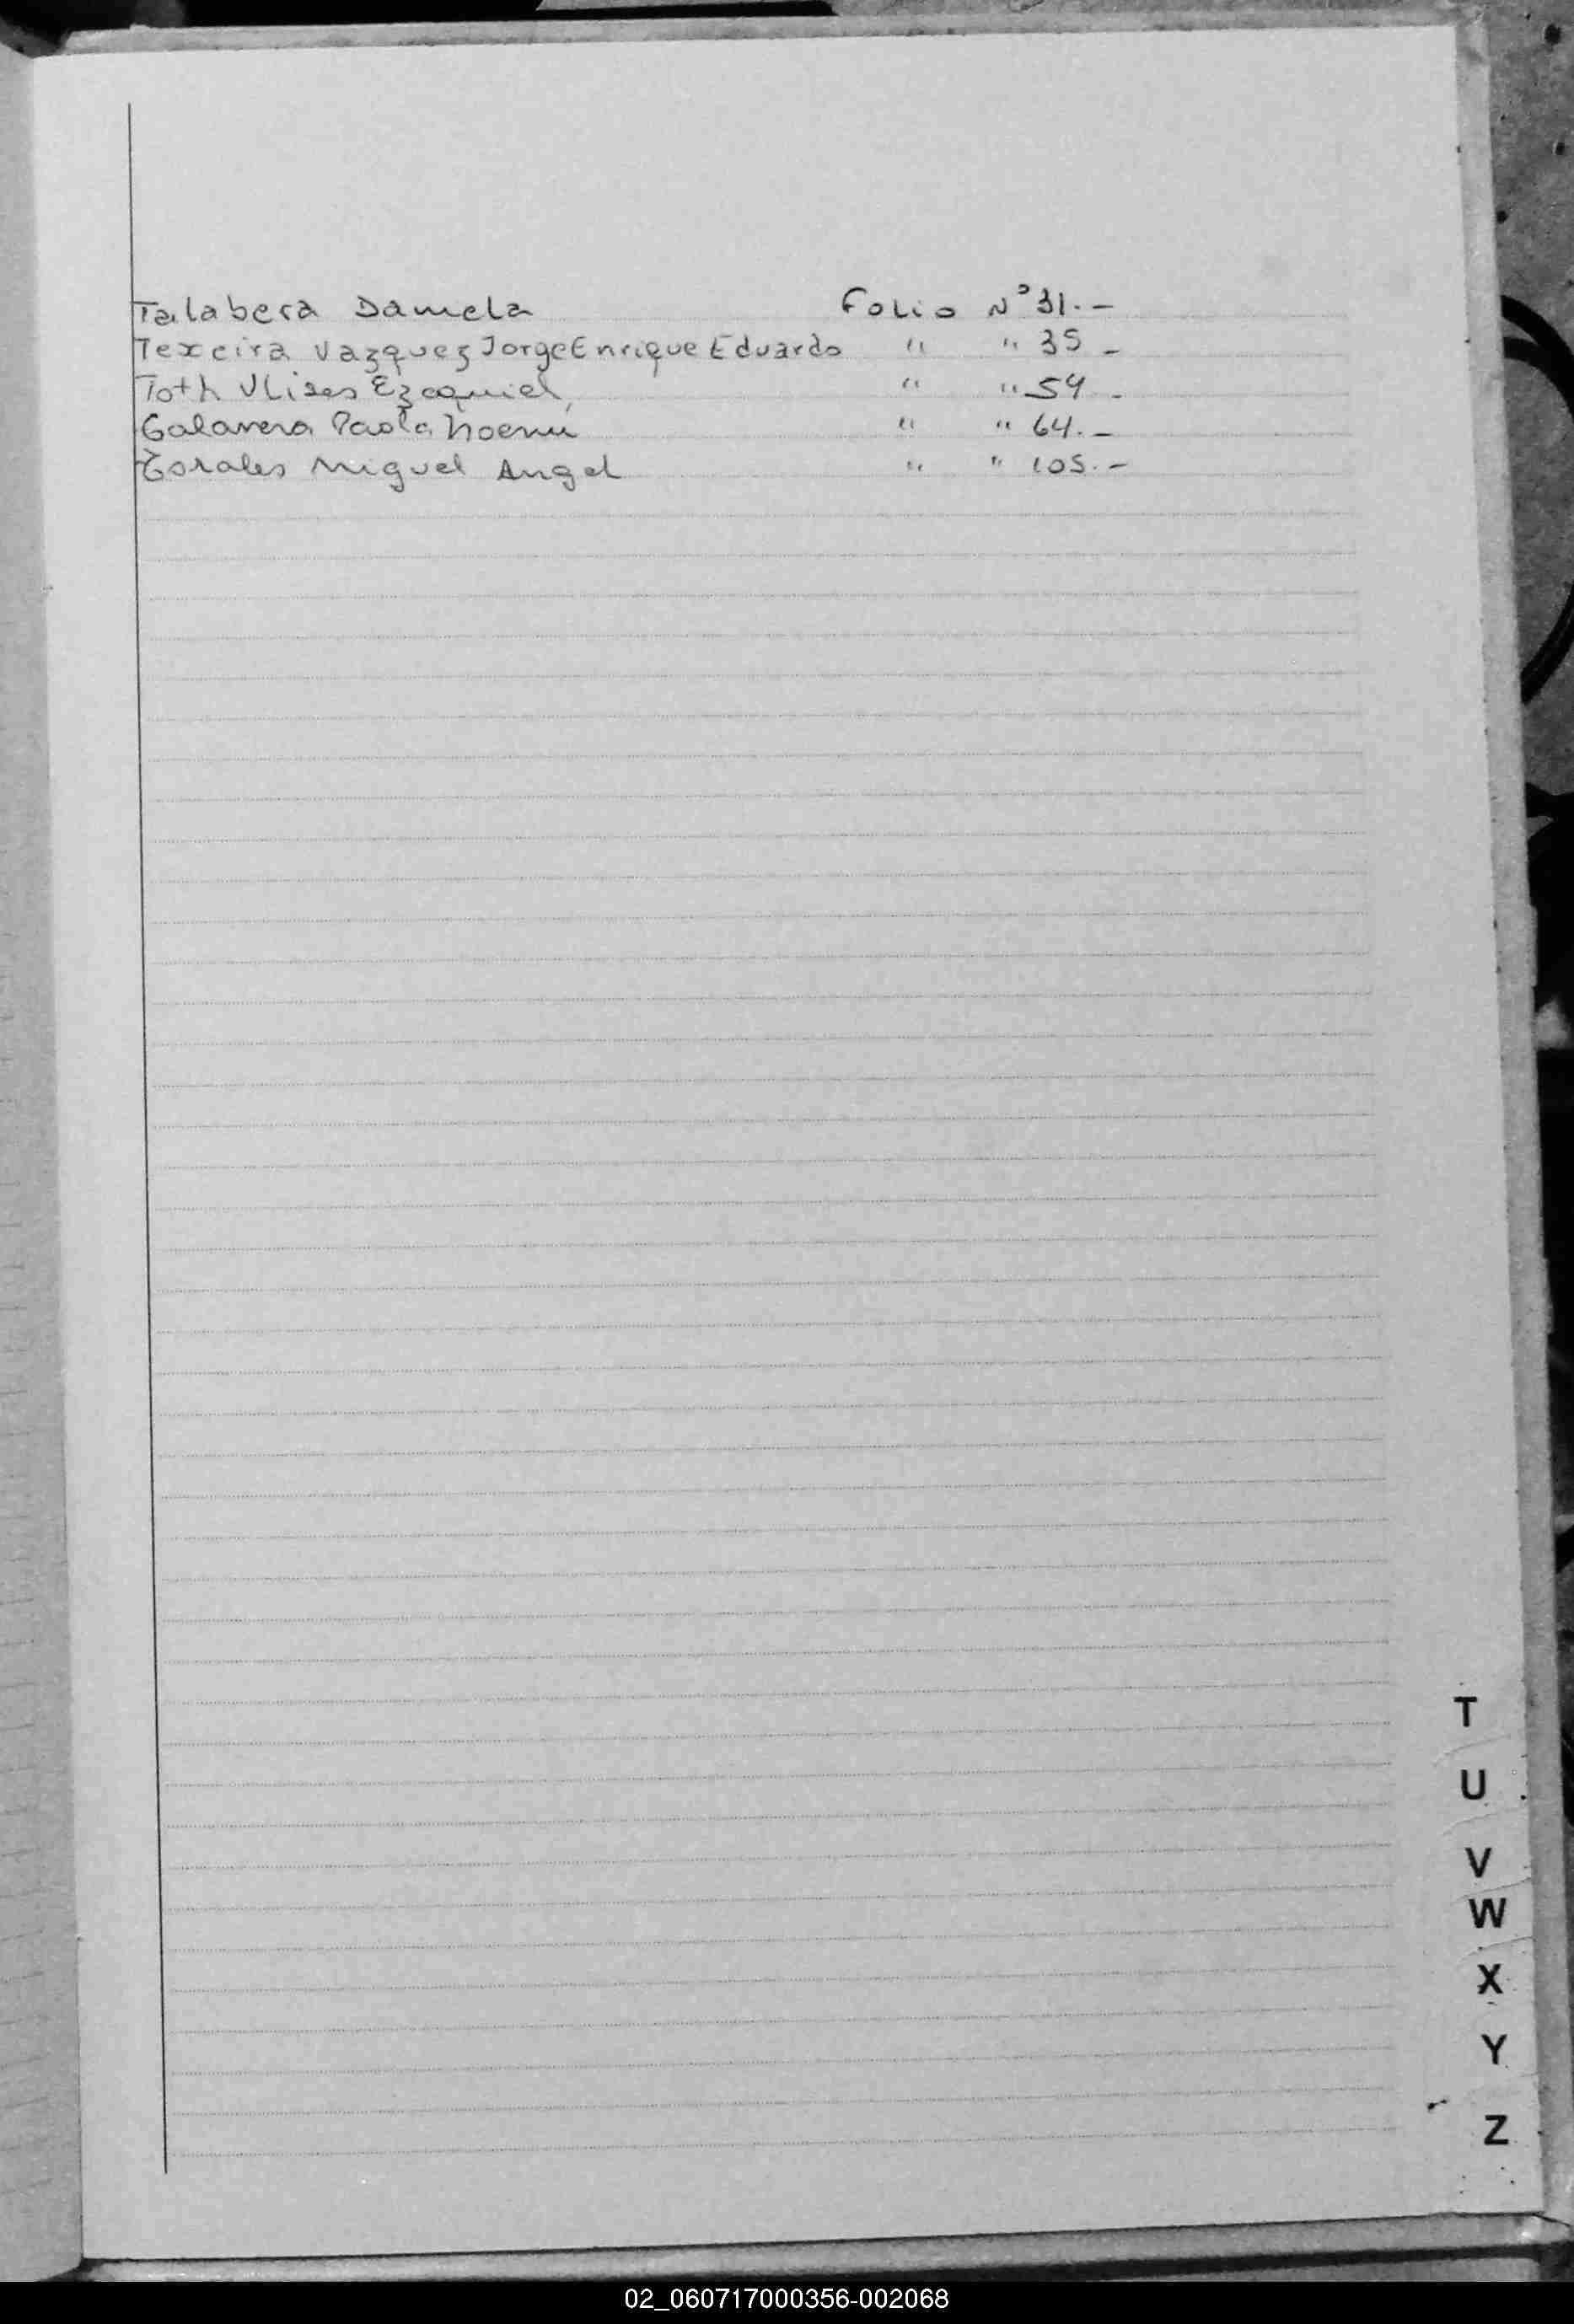 Talabera Daniela Folio N° 31.-
Texeira Vazquez Jorge Enrique Eduardo " " 35 -
Toth Ulises Ezequiel, " " 59 -
Galarera Paola Noemi " " 64.-
Torales Miguel Angel " " 105.-
T
U
V
W
X
Y
Z
02_060717000356-002068